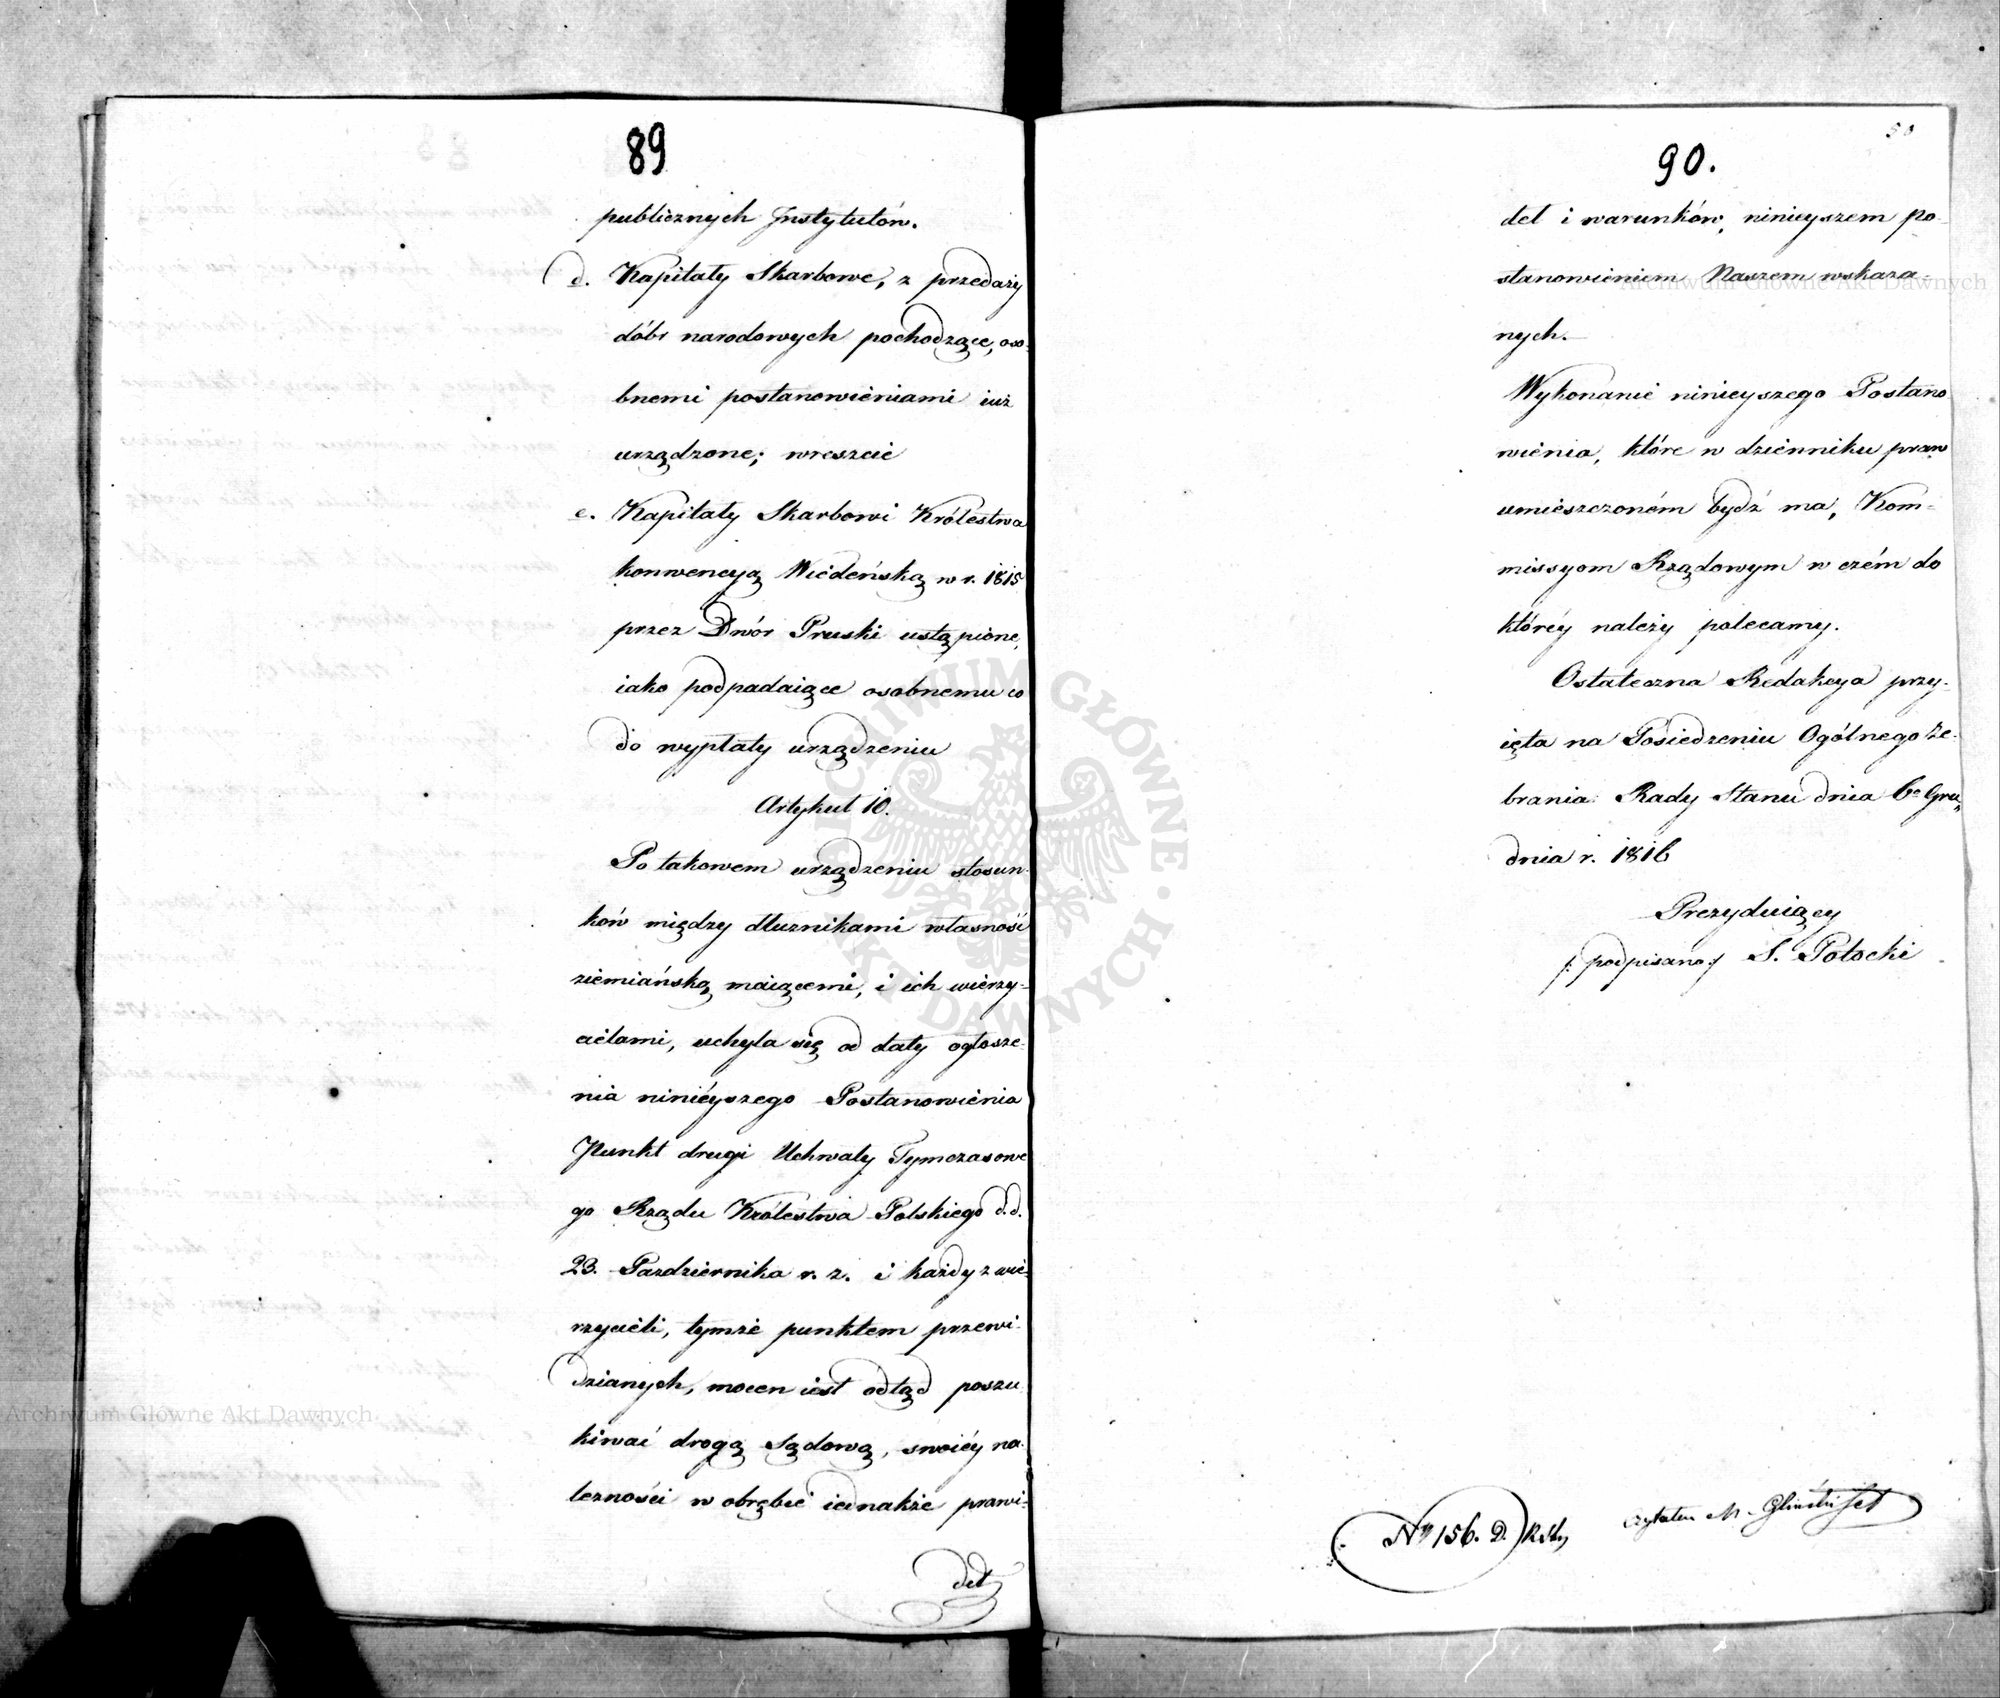 89
publicznych Jnstytutów.
d. Kapitały Skarbowe, z przedaży
dóbr narodowych pochodzące, oso-
bnemi postanowieniami iuż
urządzone; wreszcie
e. Kapitały Skarbowi Królestwa
konwencyą Wiedeńską w r. 1815
przez Dwór Pruski ustąpione,
iako podpadaiące osobnemu co
do wypłaty urządzeniu
Artykuł 10.
Po takowem urządzeniu stosun-
ków między dłużnikami własność
ziemiańską maiącemi, i ich wierzy-
cielami, uchyla się od daty ogłosze-
nia ninieyszego Postanowienia
Punkt drugi Uchwały Tymczasowe
go Rządu Królestwa Polskiego d.d.
23. Pazdziernika r. z. i każdy z wie-
rzycieli, tymże punktem przewi-
dzianych, mocen iest odtąd poszu
kiwać drogą sądową, swoiéy na-
leżności w obrębie iednakże prawi-
deł
50
90.
deł i warunków, ninieyszem po-
stanowieniem Naszem wskaza-
nych.
Wykonanie ninieyszego Postano
wienia, które w dzienniku praw
umieszczoném bydź ma, Kom-
missyom Rządowym w czém do
któréy należy polecamy.
Ostateczna Redakcya przy-
ięta na Posiedzeniu Ogólnego Ze-
brania Rady Stanu dnia 6o Gru-
dnia r. 1816
Prezyduiący
/: podpisano :/ S. Potocki
No 156. D. R.Sty
czytałem M. Gliński
Archiwum Główne Akt Dawnych
Archiwum Główne Akt Dawnych
ARCHIWUM GŁÓWNE AKT DAWNYCH